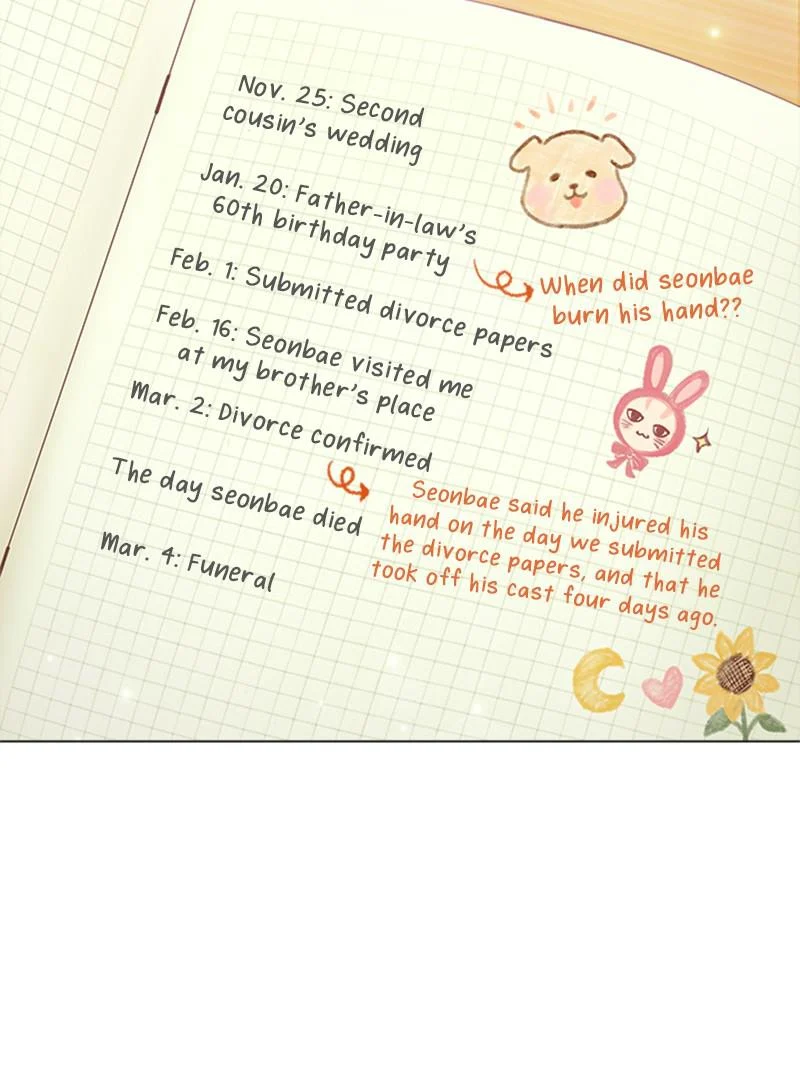 Nov. 25: Second
cousin's wedding
Jan. 20: Father-in-law's
60th birthday party
When did seonbae
burn his hand??
Feb. 1: Submitted divorce papers
Feb. 16: Seonbae visited me
at my brother's place
Mar. 2: Divorce confirmed
Seonbae said he injured his
hand on the day we submitted
the divorce papers, and that he
took off his cast four days ago.
The day seonbae died
Mar. 4: Funeral